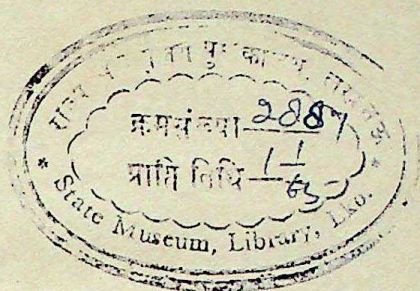 राज्य संग्रहालय पुस्तकालय, लखनऊ
क्रमसंख्या 2887
प्राप्ति तिथि 1/1/65
* State Museum, Library, Lko. *